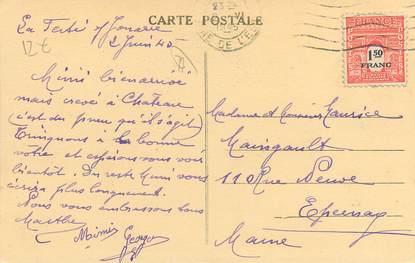 CARTE POSTALE
La Ferté s/ Jouarre
2 Juin 45
12 €
Mimi bien arrivé
mais crevé à Chateau
(c'est du pneu qu'il s'agit)
Trinquons à la bonne
votre et espérons vous voir
bientôt. Du reste Mimi vous
écrira plus longuement.
Nous vous embrassons tous
Marthe
Mimi Georges
FRANCE
POSTES
1F50
FRANC
Madame et Monsieur Maurice
Maingault
110 Rue
Epernay
Marne